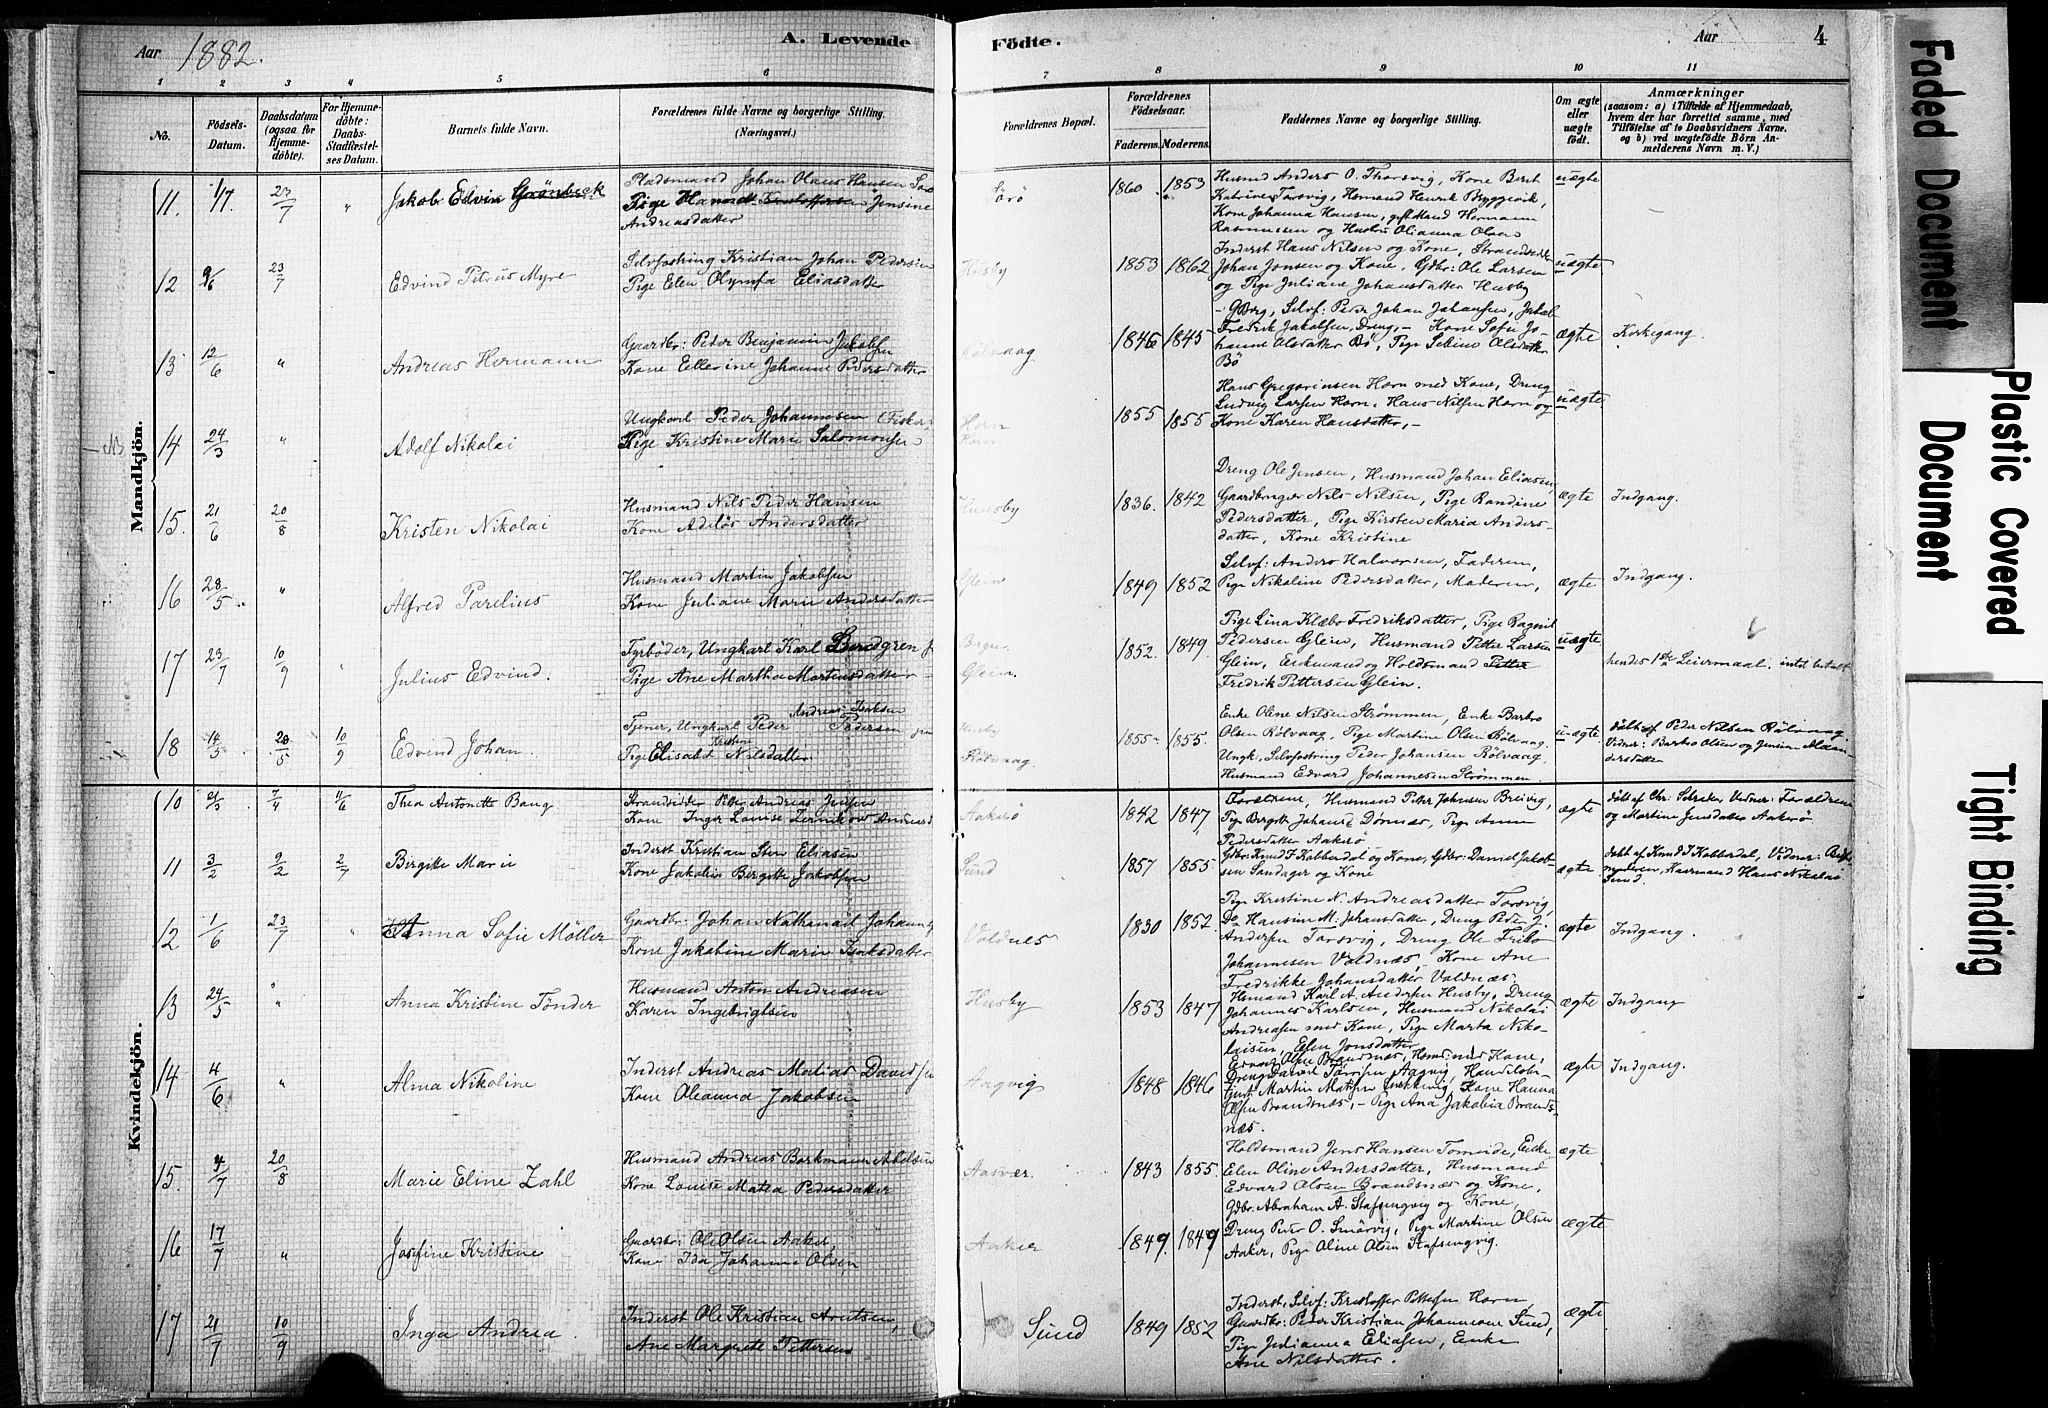 Aar 1882.
A. Levende
Födte.
Aar
4
1 2 3 4 5 6 7 8 9 10 11
No.
Födsels-
Datum.
Daabsdatum
(ogsaa for
Hjemme-
döbte).
For Hjemme-
döbte:
Daabs-
Stadfæstel-
ses Datum.
Barnets fulde Navn.
Forældrenes fulde Navne og borgerlige Stilling.
(Næringsvei.)
Forældrenes Bopæl.
Forældrenes
Födselsaar.
Faderens. Moderens.
Faddernes Navne og borgerlige Stilling.
Om ægte
eller
uægte
födt.
Anmærkninger
(saasom: a) i Tilfælde af Hjemmedaab,
hvem der har forrettet samme, med
Tilföielse af to Daabsvidners Navne,
og b) ved uægtefödte Börn An-
melderens Navn m. V.)
Mandkjön.
11. 1/7. 23/7 " Jakob Edvin Grönbeck
Pladsmand Johan Olaus Hansen
Pige Jensine
Andreasdatter
1860 1853
Husmd Anders O. Thorsvig, Kone Berit
Katrine Torsvig, Homand Henrik Byggevik,
Kone Johanna Hansen, gift Mand Hermann
Rasmussen og Hustru Olianna Olsen
uægte
12 23/7 Edvind Petrus Myre
Selvfostring Kristian Johan Pedersen
Pige Elen Olymfa Eliasdatter
Husby
1853 1862
Inderst Hans Nilsen og Kone, Strandsidder
Johan Jonsen og Kone, Gdbr: Ole Larsen
og Pige Juliane Johansdatter Husby
uægte
13 12/6 " Andreas Hermann
Gaardbr: Peder Benjamin Jakobsen
Kone Ellerine Johanne Pedersdatter
Rölvaag
1846 1845
Selvf: Peder Johan Johansen,
Fredrik Jakobsen, Dreng, - Kone Sofie Jo-
hanne Olsdatter Bö, Pige Sebine Olsdatter
Bö
ægte
Kirkegang.
NB
14 24/3 " Adolf Nikolai
Ungkarl Peder Johannesen (Fisker)
Pige Kristine Marie Salomonsen
Horn
1855 1855
Hans Gregoriusen Horn med Kone, Dreng
Ludvig Larsen Horn, Hans Nilsen Horn og
Kone Karen Hansdatter, -
uægte
15. 21/6 20/8 Kristen Nikolai
Husmand Nils Peder Hansen
Kone Adelös Andersdatter
Husby
1836. 1842
Dreng Ole Jensen, Husmand Johan Eliasen,
Gaardbruger Nils Nilsen, Pige Randine
Pedersdatter, Pige Kirsten Maria Anders-
datter, Kone Kristine
ægte
Indgang.
16 28/5 " Alfred Parelius
Husmand Martin Jakobsen
Kone Juliane Marie Andersdatter
Glein
1849 1852
Selvf: Anders Halvorsen, Faderen,
Pige Nikoline Pedersdatter, Moderen,
ægte
Indgang.
17 23/7 10/9 " Julius Edvind.
Fyrböder, Ungkarl Karl Lundgren
Pige Ane Martha Martinsdatter
Glein.
1852. 1849.
Pige Lina Klæbo Fredriksdatter, Pige Ragnil
Pedersen Glein, Husmand Petter Larsen
Glein, Enkemand og Holdsmand Petter
Fredrik Pettersen Glein.
uægte
hendes 1ste Leiermaal. intet betalt.
18 14/5 28/5 10/9 Edvind Johan.
Andreas Isaksen
Tjener, Ungkarl Peder Pedersen
Kristine
Pige Elisabet Nilsdatter
Husby
Rölvaag.
1855 1855.
Enke Oline Nilsen Strømmen, Enke Barbro
Olsen Rölvaag, Pige Martine Olsen Rölvaag.
Ungk., Selvfostring Peder Johansen Rölvaag,
Husmand Edvard Johannesen Strömmen.
uægte
döbt af Peder Nilsen Rölvaag.
Vidner: Barbro Olsen og Jensine
dersdatter
Kvindekjön.
10 21/3 7/4 11/6 Thea Antonette Bang
Strandsidder Petter Andreas Jensen
Kone Inger Louise Zernikow
Aakerö
1842 1847
Forældrene, Husmand Peter Johnsen Breivig,
Pige Bergitte Johanse Dönnæs, Pige Anne
Pedersdatter Aakerö
ægte
döbt af Chr: Vidner: Forældrene
og Martine Jensdatter Aakerö
11 3/2 9/2 2/7 Birgitte Marie
Inderst Kristian Sten Eliasen
Kone Jakobia Bergitte Jakobsen
Sund
1857 1855
Gdbr: Knud J Kobberdal og Kone, Gdbr: Daniel Jakob-
sen Sandager og Kone
ægte
döbt af Knud J Kobberdal, Vidner:
Aasmund Hans Nikolai
Sund.
12 1/6 23/7 " Anna Sofie Möller
Gaardbr: Johan Nathanael
Kone Jakobine Marie Isaksdatter
Valdnes
1830 1852.
Pige Kristine N. Andreasdatter Torsvig,
Do Hansine M. Johansdatter, Dreng Peder J.
Andersen Torsvig, Dreng Ole
Johannesen Valdnæs, Kone Ane
Fredrikke Johansdatter Valdnæs.
ægte
Indgang.
13 24/5 " Anna Kristine Tönder
Husmand Anton Andreasen
Karen Ingebrigtsen
Husby
1853 1847
Husmand Karl A. Andersen Husby, Dreng
Johannes Karlsen, Husmand Nikolai
Andreasen med Kone, Pige Marta Niko-
laisen, Elen Jonsdatter
ægte
Indgang
14 4/6 " Alma Nikoline
Inderst Andreas Matias Davidsen
Kone Oleanna Jakobsen
Aagvig
1848 1846
Edvard Olsen Brandsnæs, Husmd: med Kone,
Dreng David Aagvig, Handelsbe-
tjent Martin Kone Hanna
Olsen Brandsnæs, - Pige Ana Jakobia Brands-
næs.
ægte
Indgang.
15. 4/7 20/8 Marie Eline Zahl
Husmand Andreas Borkmann Abelsen
Kone Louise Matea Pedersdatter
Aasvær
1843 1855.
Holdsmand Jens Hansen Tomeide, Enke
Elen Oline Andersdatter, Husmand
Edvard Olsen Brandsnæs og Kone,
Gdbr: Abraham A. Stafsengvig og Kone
ægte
16 17/7 " Josefine Kristine
Gaardbr: Ole Olsen Aaker,
Kone Ida Johanne Olsen
Aaker
1849. 1849
Dreng Peder O. Smörvig, Pige Martine Olsen
Aaker, Pige Oline Olsen Stafsengvig.
ægte
17 21/7 10/9 Inga Andrea.
Inderst Ole Kristian Arntsen,
Ane Margrete Pettersen
Sund
1849 1852
Inderst, Selvf: Kristoffer Pettersen Horn,
Gaardbr: Peder Kristian Johannesen Sund,
Pige Julianna Eliasen, Enke
Ane Nilsdatter.
ægte
Faded Document
Plastic Covered
Document
Tight Binding